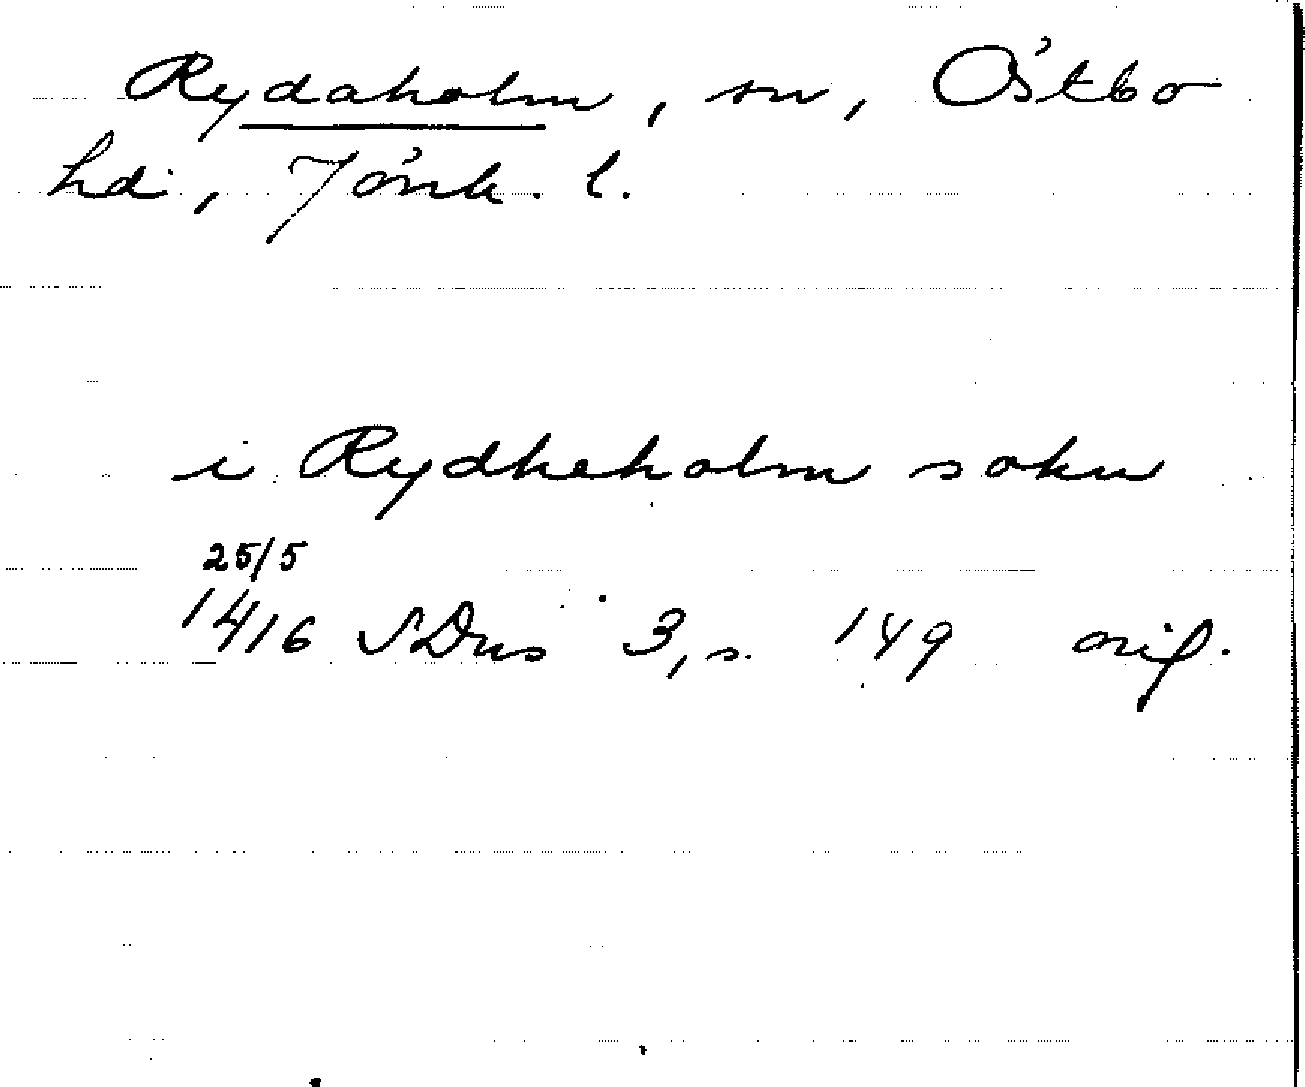 Rydaholm, sn, Östbo
hd, Jönk. l.
i Rydheholm sokn
25/5
1416 SDns 3, s. 149 orig.